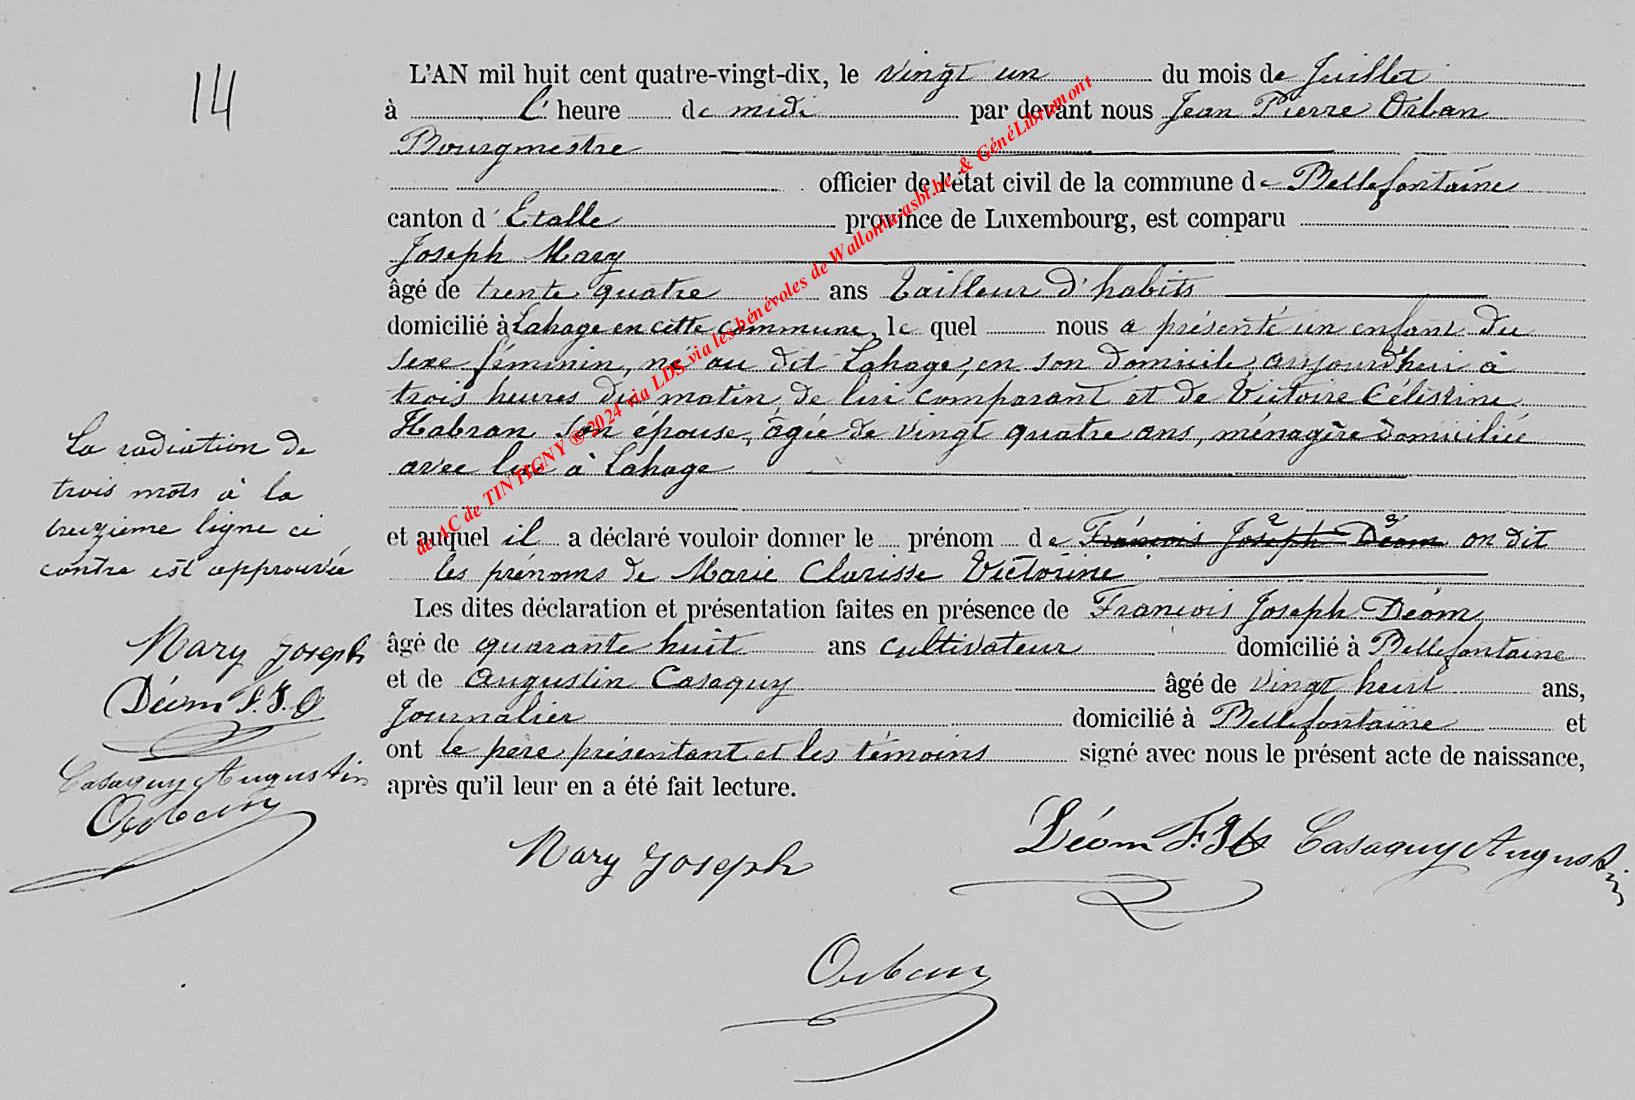 14
L'AN mil huit cent quatre-vingt-dix, le vingt un du mois de Juillet
à l' heure de midi par devant nous Jean Pierre Orban
Bourgmestre
officier de l'état civil de la commune de Bellefontaine
canton d'Etalle province de Luxembourg, est comparu
Joseph Mary
âgé de trente quatre ans tailleur d'habits
domicilié à Lahage en cette commune, le quel nous a présenté un enfant du
sexe féminin, né au dit Lahage, en son domicile, aujourd'hui à
trois heures du matin, de lui comparant et de Victoire Célestine
Habran son épouse, âgée de vingt quatre ans, ménagère domiciliée
avec lui à Lahage
et auquel il a déclaré vouloir donner le prénom de François Joseph Déom on dit
les prénoms de Marie Clarisse Victorine
Les dites déclaration et présentation faites en présence de François Joseph Déom,
âgé de quarante huit ans cultivateur domicilié à Bellefontaine
et de Augustin Casaquy âgé de vingt huit ans,
Journalier domicilié à Bellefontaine et
ont le père présentant et les témoins signé avec nous le présent acte de naissance,
après qu'il leur en a été fait lecture.
La radiation de
trois mots à la
treizième ligne ci
contre est approuvée
Mary Joseph
Déom F.J.
Casaquy Augustin
Orban
Mary Joseph
Déom F. J
Casaquy Augustin
Orban
de AC de TINTIGNY ®2024 via LDS via les bénévoles de Wallonia-asbl.be & GénéLibramont